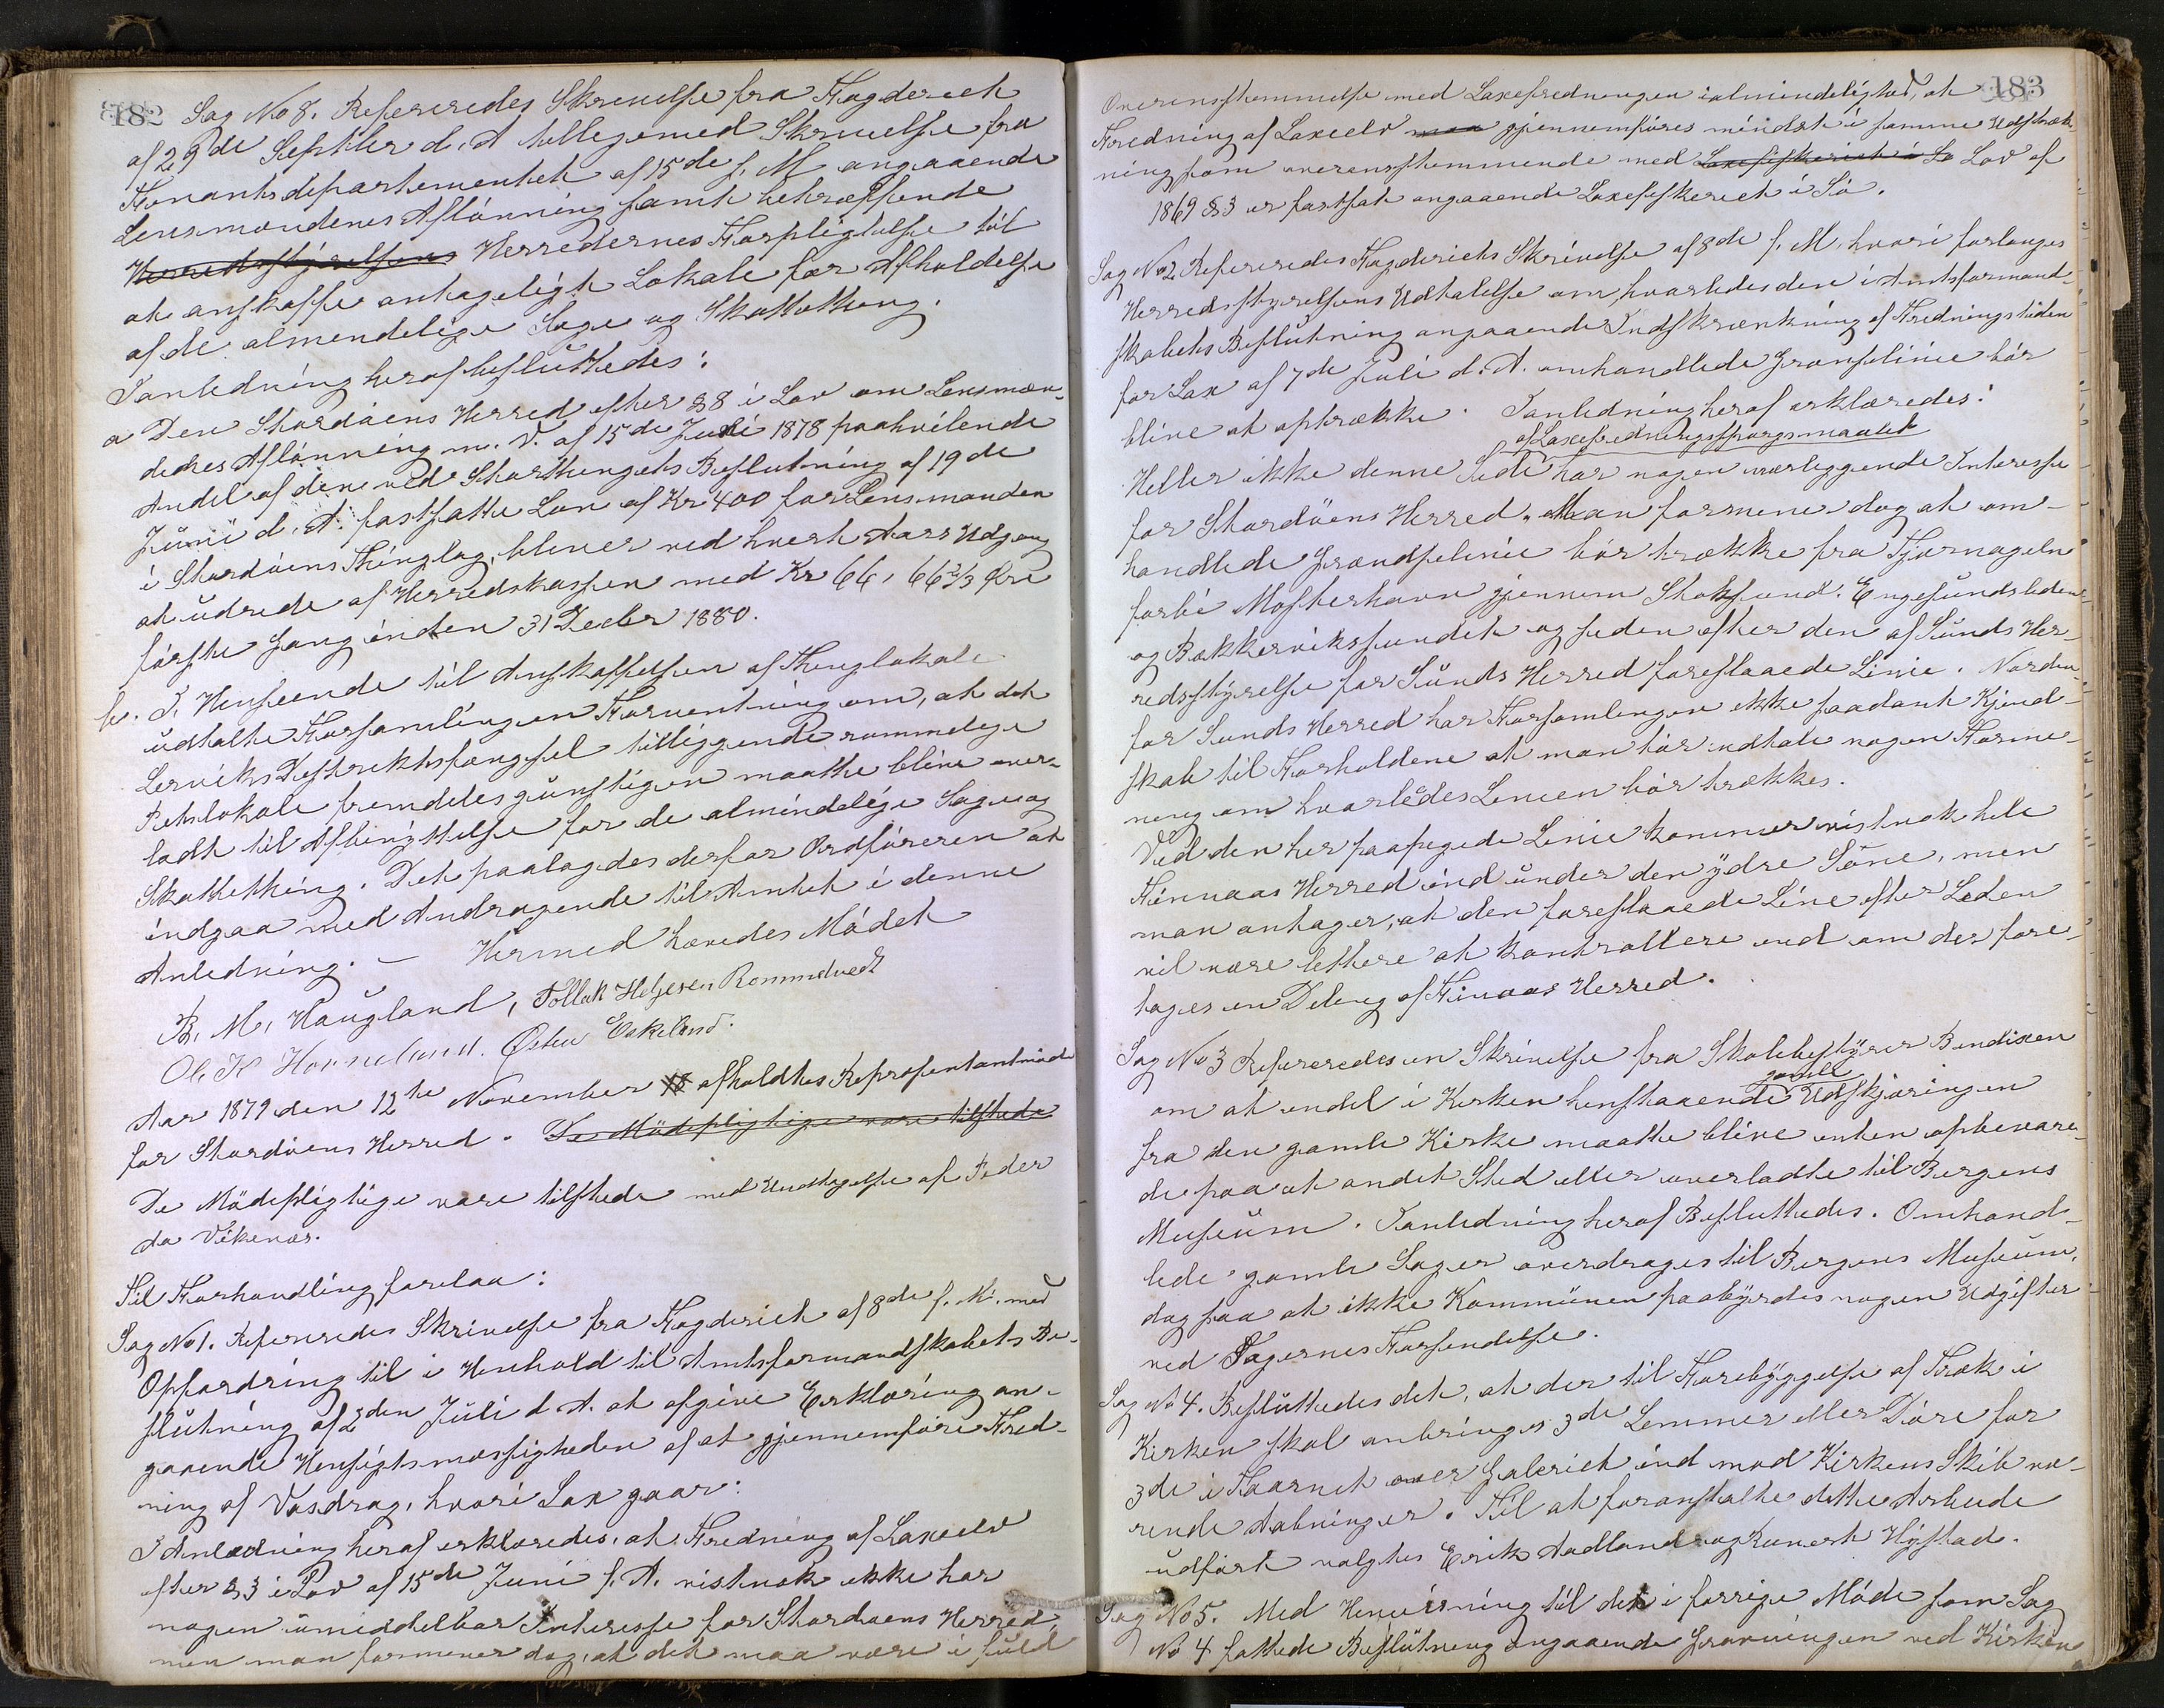 182
Sag No 8. Refereredes Skrivelse fra Fogderiet
af 29de Septbr d. A tilligemed Skrivelse fra
Finantsdepartementet af 15de s. M angaaende
Lensmandenes Aflønning samt betræffende
Herredsstyrelsens Herredernes Forpligtelse til
at anskaffe antageligt Lokale for Afholdelse
af de almendelige Sage og Skattething.
I anledning heraf besluttedes:
a Den Stordøens Herred efter § 8 i Lov om Lensmæn-
denes Aflønning m. V. af 15de Juni 1878 paahvilende
Andel af den ved Storthingets Beslutning af 19de
Juni d. A. fastsatte Løn af Kr 400 for Lensmanden
i Stordøens Thinglag, bliver ved hvert Aars Udgang
at udrede af Herredskassen med Kr 66, 66 2/3 Øre
første Gang inden 31 Decbr 1880.
b. I Henseende til Anskaffelsen af Thinglokale
udtalte Forsamlingen Forventning om, at det
Lerviks Distriktsfængsel tilliggende rommelige
Retslokale fremdeles gunstigen maatte blive over-
ladt til Afbenyttelse for de almindelige Sage og
Skattething. Det paalagdes derfor Ordføreren at
indgaa med Andragende til Amtet i denne
Anledning. – Hermed hævedes Mødet
B. M. Haugland, Tollak Helgesen Rommetvedt
Ol. K Horneland. Østen Eskeland.
Aar 1879 den 12te November afholdtes Repræsentantmøde
for Stordøens Herred. De Mødepligtige vare tilstede
De Mødepligtige vare tilstede med Undtagelse af Peder
da Vikenæs.
Til Forhandling forelaa:
Sag No 1. Refereredes Skrivelse fra Fogderiet af 8de s. M. med
Opfordring til i Henhold til Amtsformandskabets Be-
slutning af 2den Juli d. A. at afgive Erklæring an-
gaaende Hensigtsmæssigheden af at gjennemføre Fred-
ning af Vasdrag, hvori Lax gaar:
I Anledning heraf erklæredes, at Fredning af Laxeelv
efter § 3 i Lov af 15de Juni f. A. vistnok ikke har
nogen umiddelbar Interesse for Stordøens Herred,
men man formener dog, at det maa være i fuld
183
Overensstemmelse med Laxefredningen i almindelighed, at
Fredning af Laxeelv maa gjennemføres mindst i samme Udstræk-
ning som overensstemmende med Laxefiskeriet i Sø Lov af
1869 § 3 er fastsat angaaende Laxefiskeriet i Sø.
Sag No 2 Refereredes Fogderiets Skrivelse af 8de s. M. hvori forlanges
Herredsstyrelsens Udtalelse om hvorledes den i Amtsformand-
skabets Beslutning angaaende Indskrænkning af Fredningstiden
for Lax af 7de Juli d. A. omhandlede Grænselinie bør
blive at optrække. I anledning heraf erklæredes:
af Laxefredningsspørgsmaalet
Heller ikke denne Side har nogen værliggende Interesse
for Stordøens Herred. Man formener dog at om-
handlede Grændselinie bør trække fra Fjørnageln
forbi Mosterhavn gjennem Stoksund. Engesundsleden
og Bakkerviksundet og siden efter den af Sunds Her-
redsstyrelse for Sunds Herred foreslaaede Linie. Norden-
for Sunds Herred har Forsamlingen ikke saadant Kjend-
skab til Forholdene at man tør udtale nogen Forme-
ning om hvorledes Linien bør trækkes.
Ved den her paapegede Linie kommer vistnok hele
Finnaas Herred ind under den ydre Sone, men
man antager, at den foreslaaede Line efter Leden
vil være lettere at kontrollere end om der fore-
tages en Deling af Finaas Herred.
Sag No 3 Refereredes en Skrivelse fra Skolebestyrer Bendixen
om at endel i Kirken henstaaende gamle Udskjæringen
fra den gamle Kirke maatte blive enten opbevare-
de paa et andet Sted eller overladte til Bergens
Museum. I anledning heraf Besluttedes. Omhand-
lede gamle Sager overdrages til Bergens Museum,
dog saa at ikke Kommunen paabyrdes nogen Udgifter
ved Sagernes Forsendelse.
Sag No 4. Besluttedes det, at der til Forebyggelse af Træk i
Kirken skal anbringes 3de Lemmer eller Døre for
3de i Taarnet over Galeriet ind mod Kirkens Skib væ-
rende Aabninger. Til at foranstalte dette Arbeide
udført valgtes Erik Aadland og Knut Hystad.
Sag No 5. Med Henvisning til det i forrige Møde som Sag
No 4 fattede Beslutning angaaende Gravningen ved Kirken